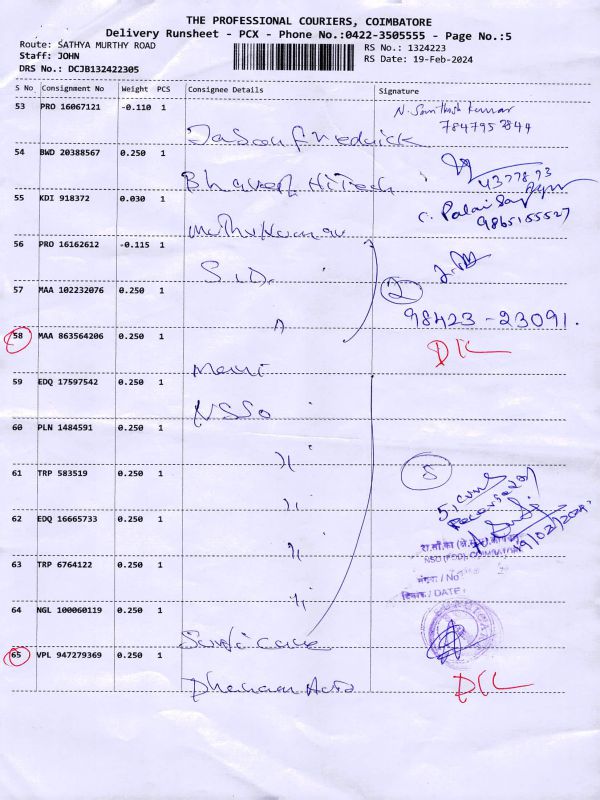 THE PROFESSIONAL COURIERS, COIMBATORE
Delivery Runsheet - PCX - Phone No.:0422-3505555 - Page No.:5
Route: SATHYA MURTHY ROAD
RS No.: 1324223
Staff: JOHN
RS Date: 19-Feb-2024
DRS No.: DCJB132422305
S No Consignment No Weight PCS Consignee Details Signature
53 PRO 16067121 -0.110 1
7847953844
54 BWD 20388567 0.250 1
Bhavesh HiTech
55 KDI 918372 0.030 1
C. Palai
9865155527
Muthukumar
56 PRO 16162612 -0.115 1
S.I.D.
57 MAA 102232076 0.250 1
2
98423-23091.
58 MAA 863564206 0.250 1
DCL
Mani
59 EDQ 17597542 0.250 1
NSSO
60 PLN 1484591 0.250 1
61 TRP 583519 0.250 1
5
62 EDQ 16665733 0.250 1
19/02/2024
NSO (FOD), COIMBATORE
63 TRP 6764122 0.250 1
संख्या / No
दिनांक / DATE:
64 NGL 100060119 0.250 1
65 VPL 947279369 0.250 1
DCL